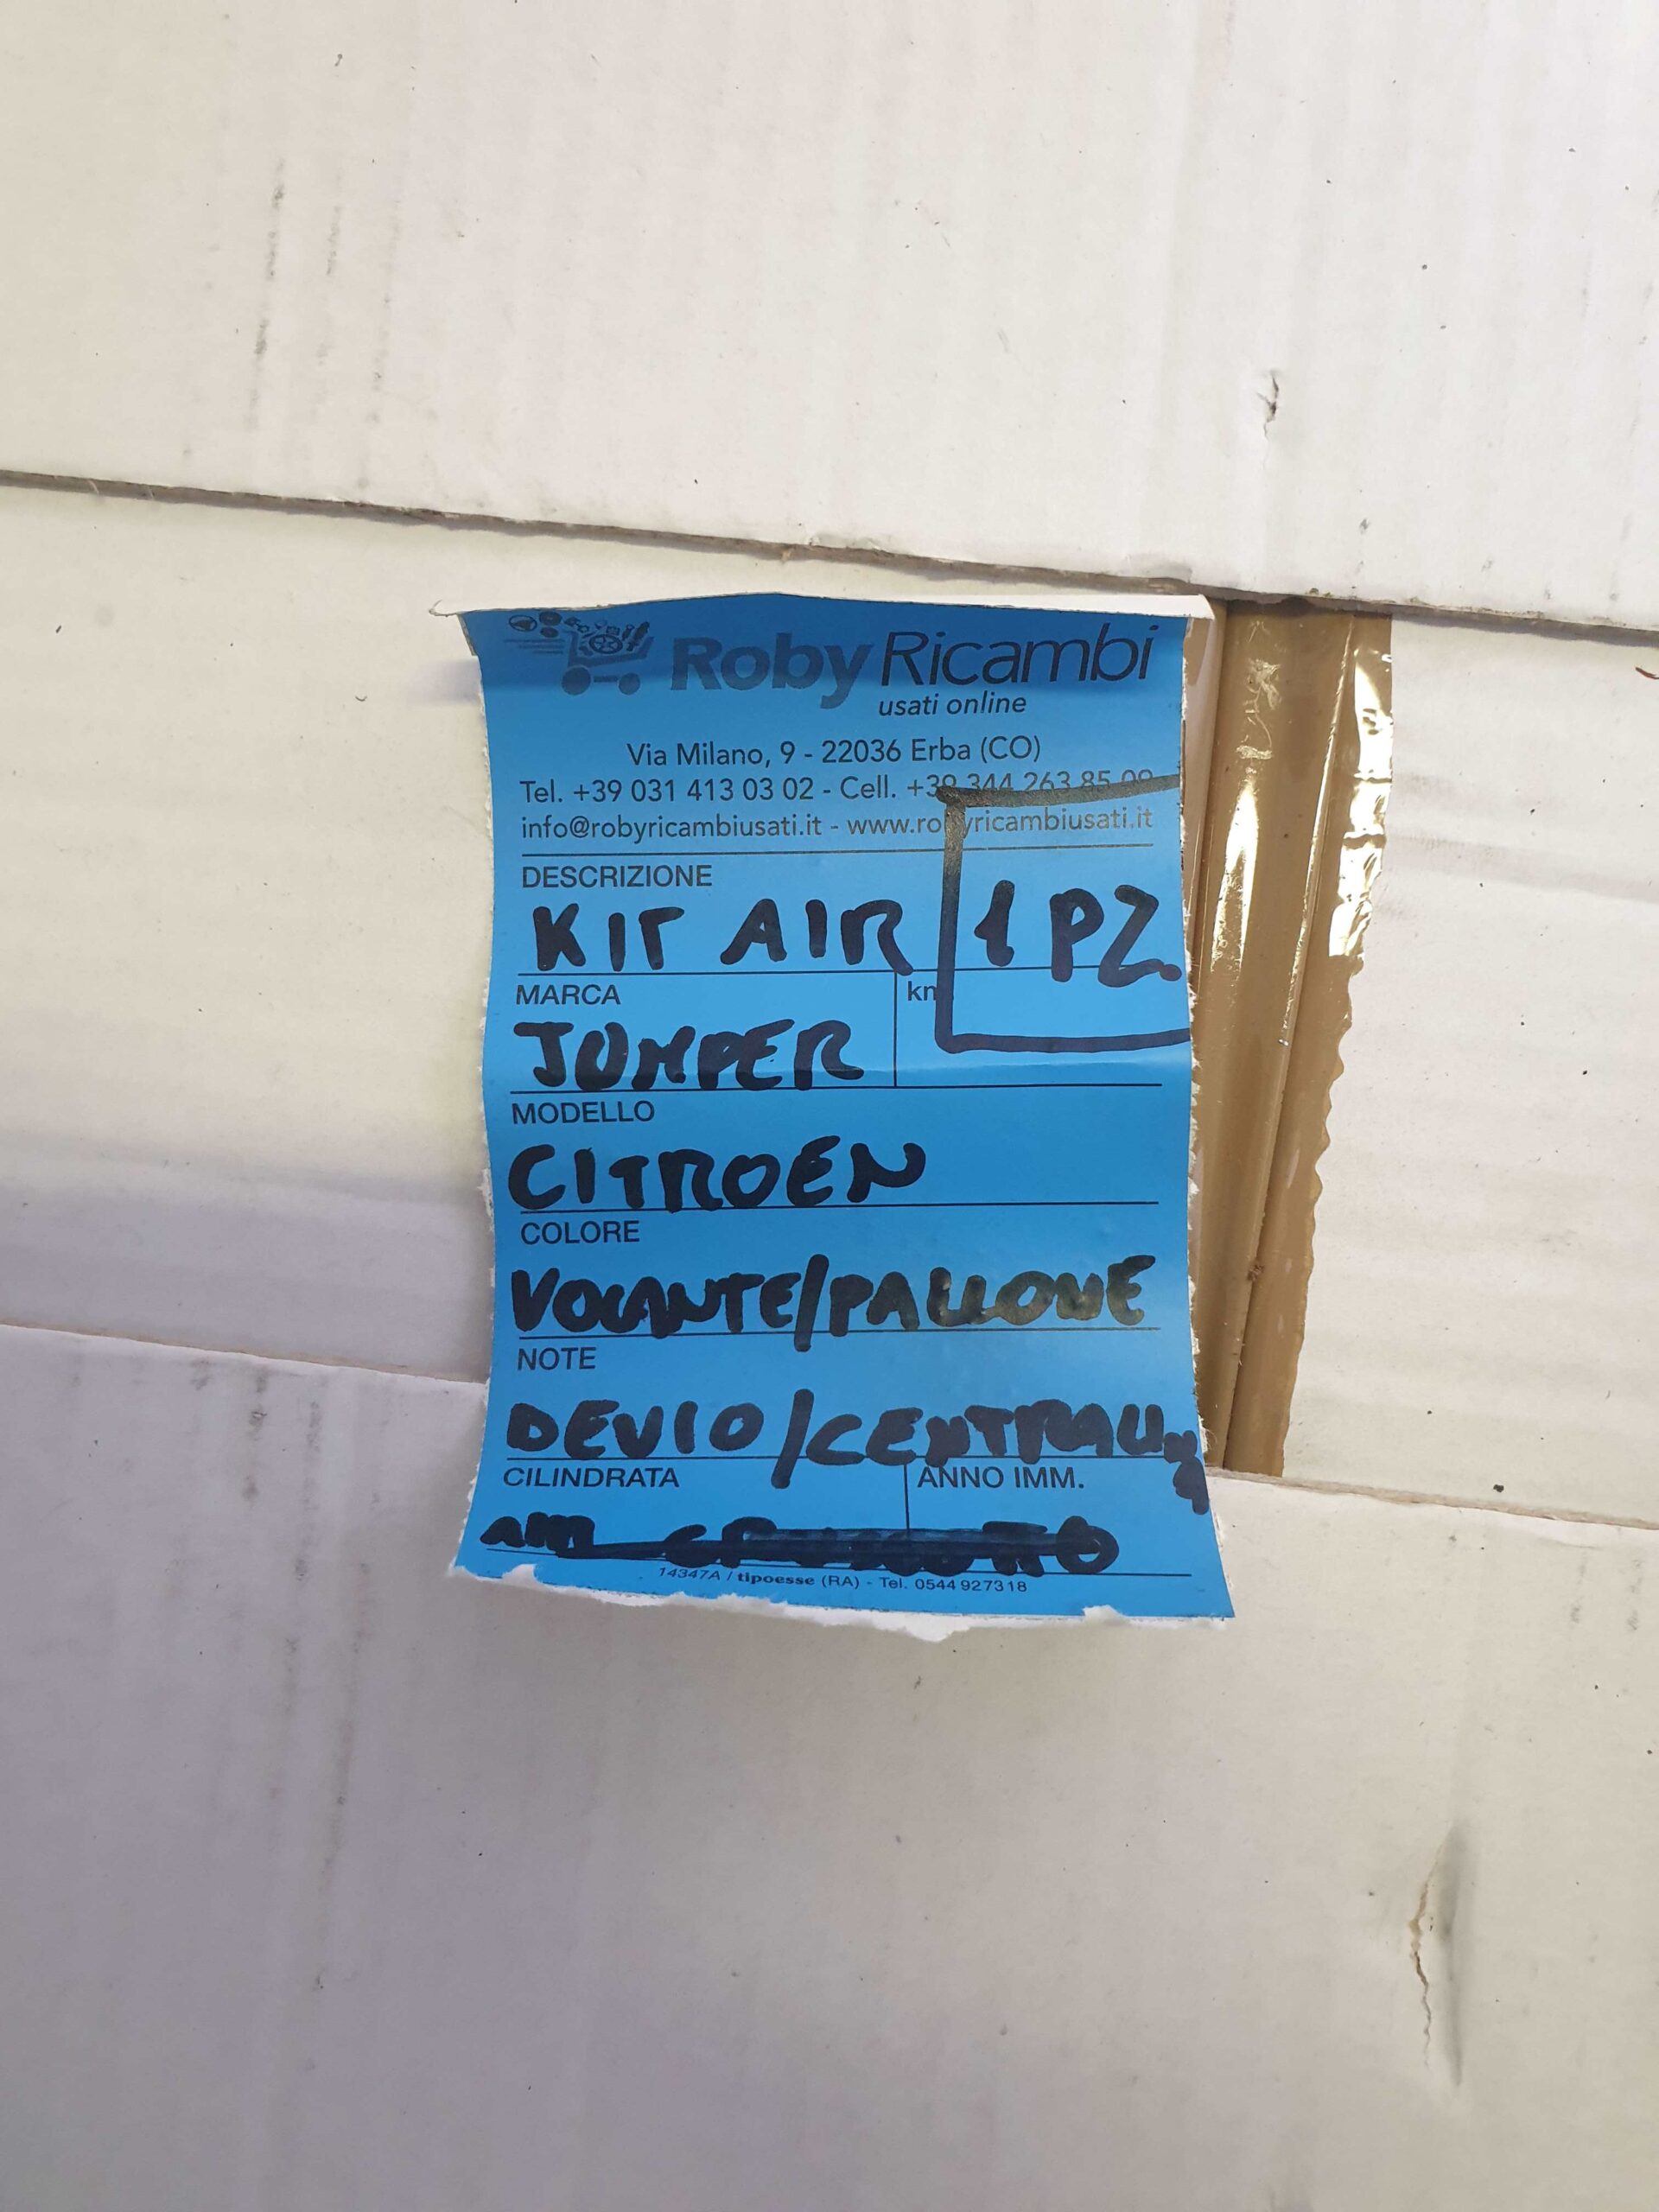 Roby Ricambi
usati online
Via Milano, 9 - 22036 Erba (CO)
Tel. +39 031 413 03 02 - Cell. +39 344 263 85 09
info@robyricambiusati.it - www.robyricambiusati.it
DESCRIZIONE
KIT AIR 1 PZ.
MARCA km.
JUMPER
MODELLO
CITROEN
COLORE
VOLANTE/PALLONE
NOTE
DEVIO/CENTRALINA
CILINDRATA ANNO IMM.
AIR
14347A / tipoesse (RA) - Tel. 0544 927318